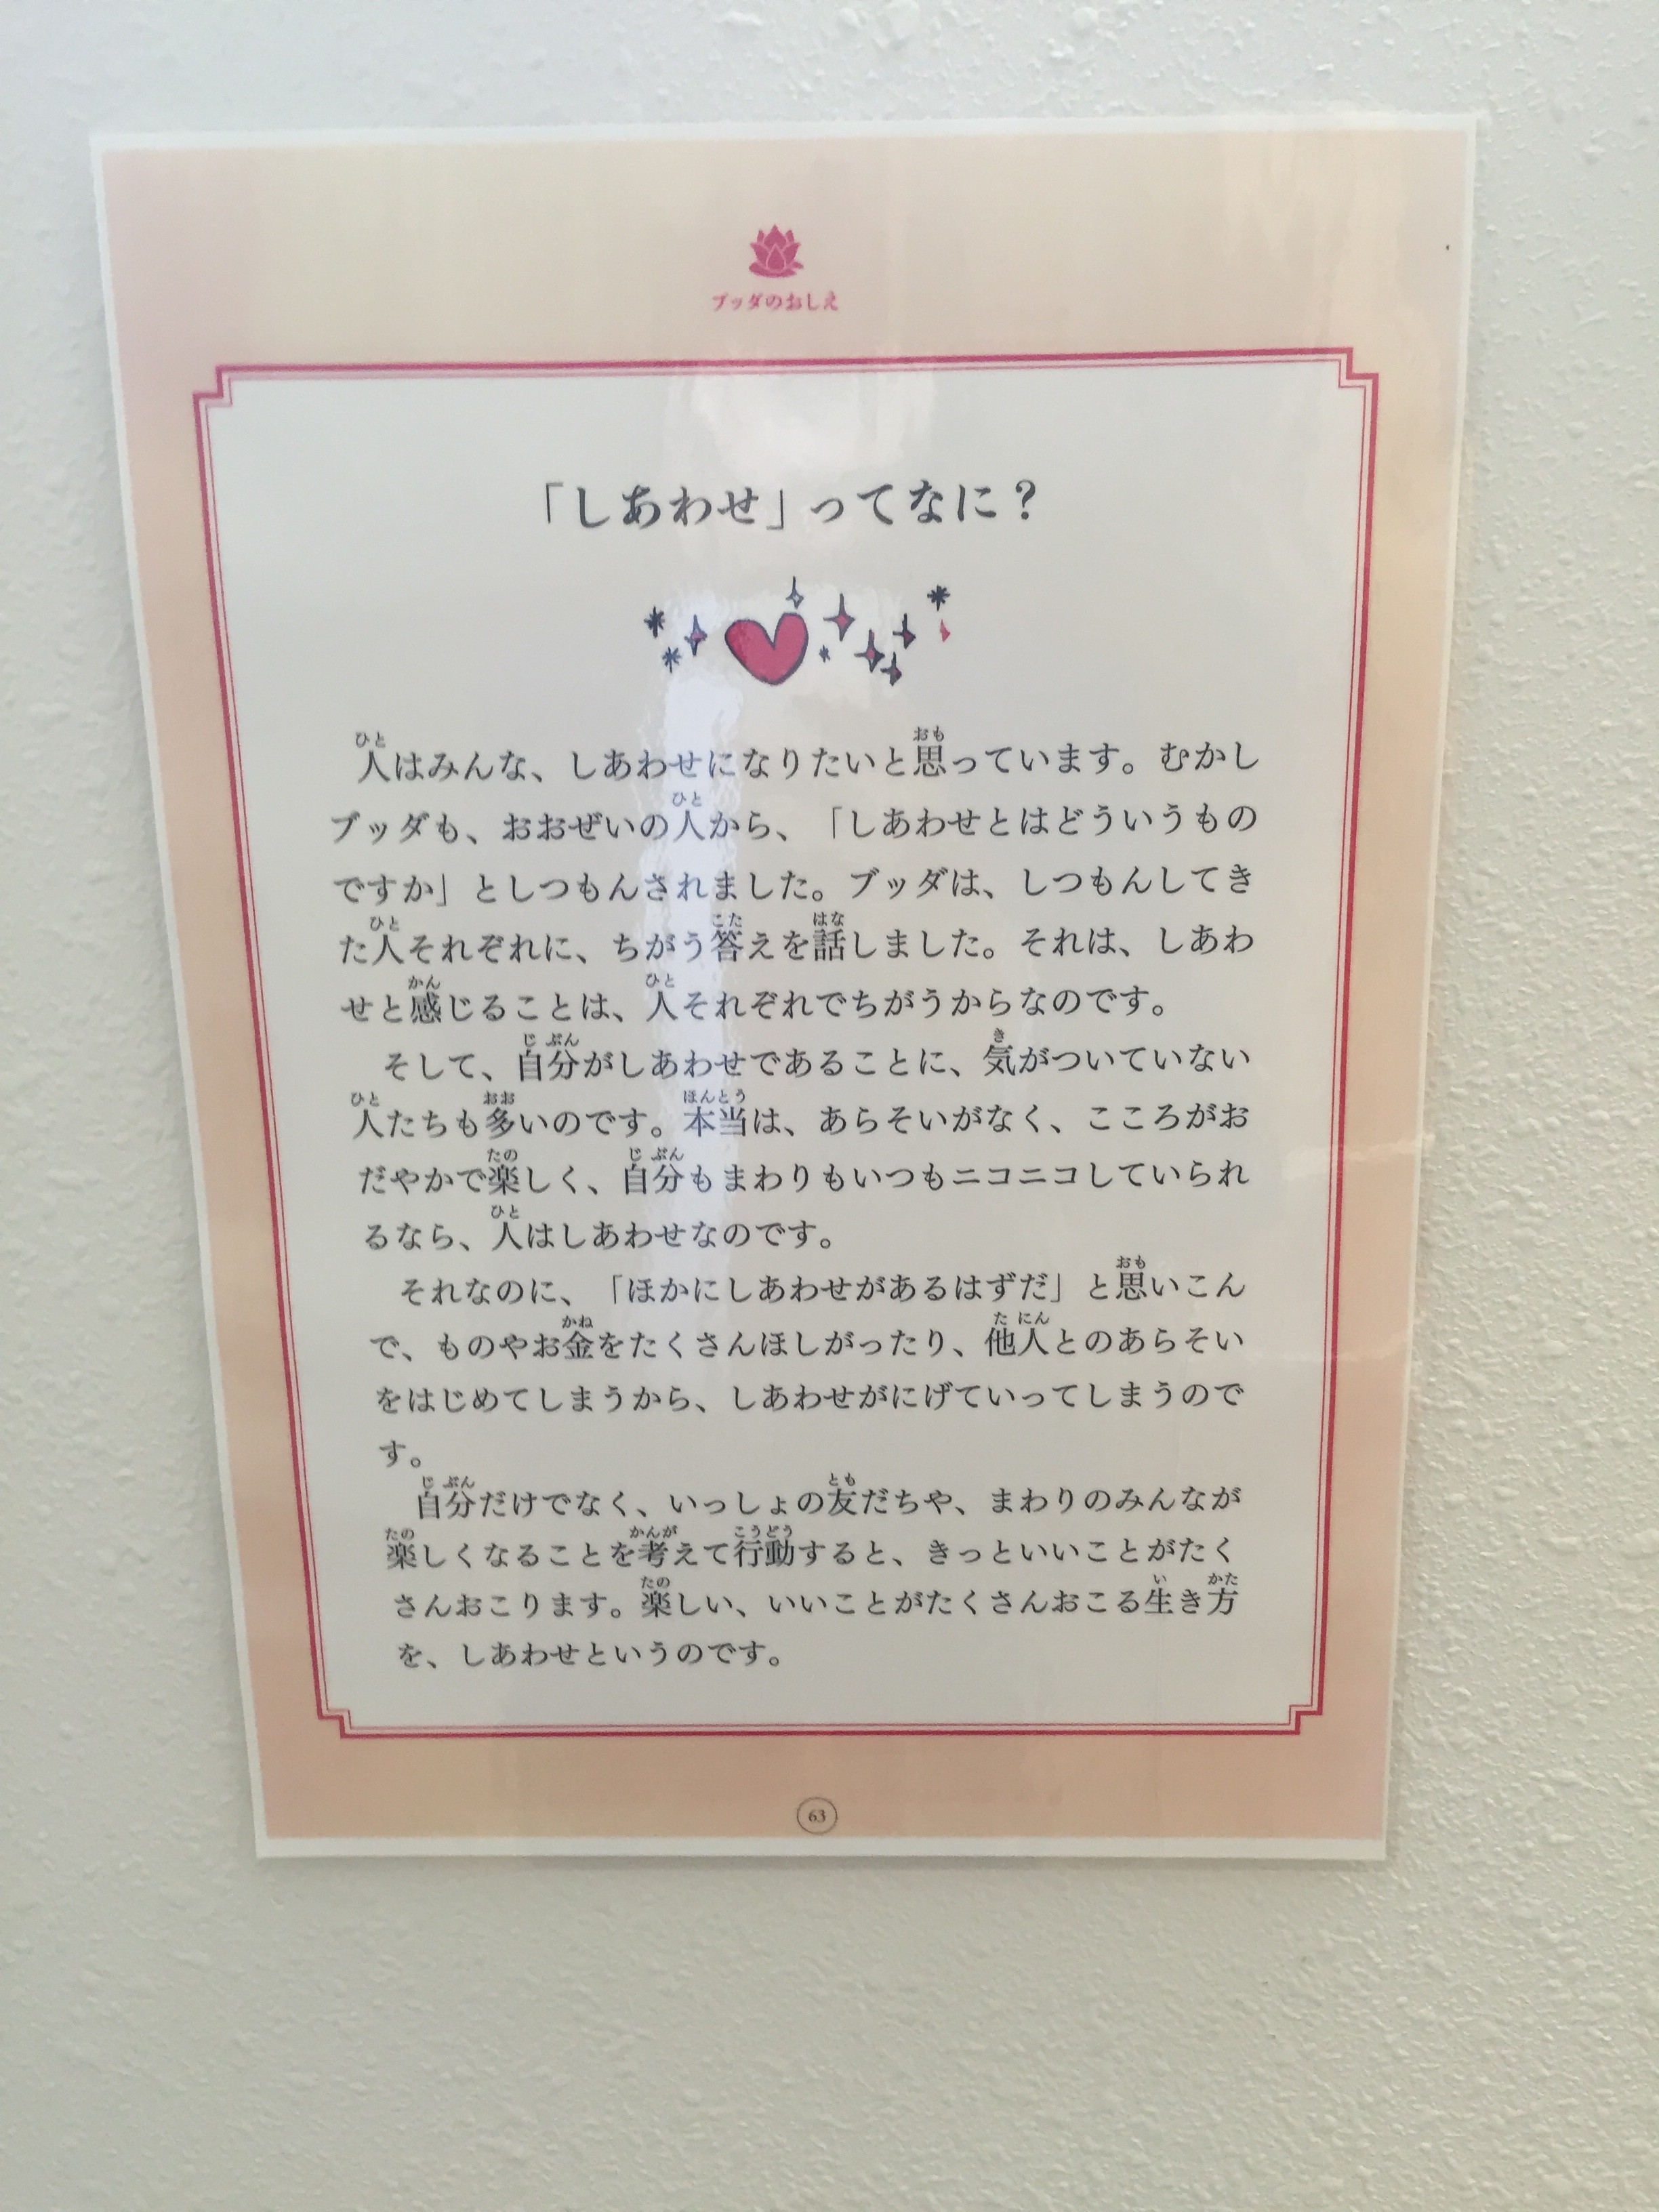 ブッダのおしえ
「しあわせ」ってなに？
人はみんな、しあわせになりたいと思っています。むかし
ブッダも、おおぜいの人から、「しあわせとはどういうもの
ですか」としつもんされました。ブッダは、しつもんしてき
た人それぞれに、ちがう答えを話しました。それは、しあわ
せと感じることは、人それぞれでちがうからなのです。
そして、自分がしあわせであることに、気がついていない
人たちも多いのです。本当は、あらそいがなく、こころがお
だやかで楽しく、自分もまわりもいつもニコニコしていられ
るなら、人はしあわせなのです。
それなのに、「ほかにしあわせがあるはずだ」と思いこん
で、ものやお金をたくさんほしがったり、他人とのあらそい
をはじめてしまうから、しあわせがにげていってしまうので
す。
自分だけでなく、いっしょの友だちや、まわりのみんなが
楽しくなることを考えて行動すると、きっといいことがたく
さんおこります。楽しい、いいことがたくさんおこる生き方
を、しあわせというのです。
63